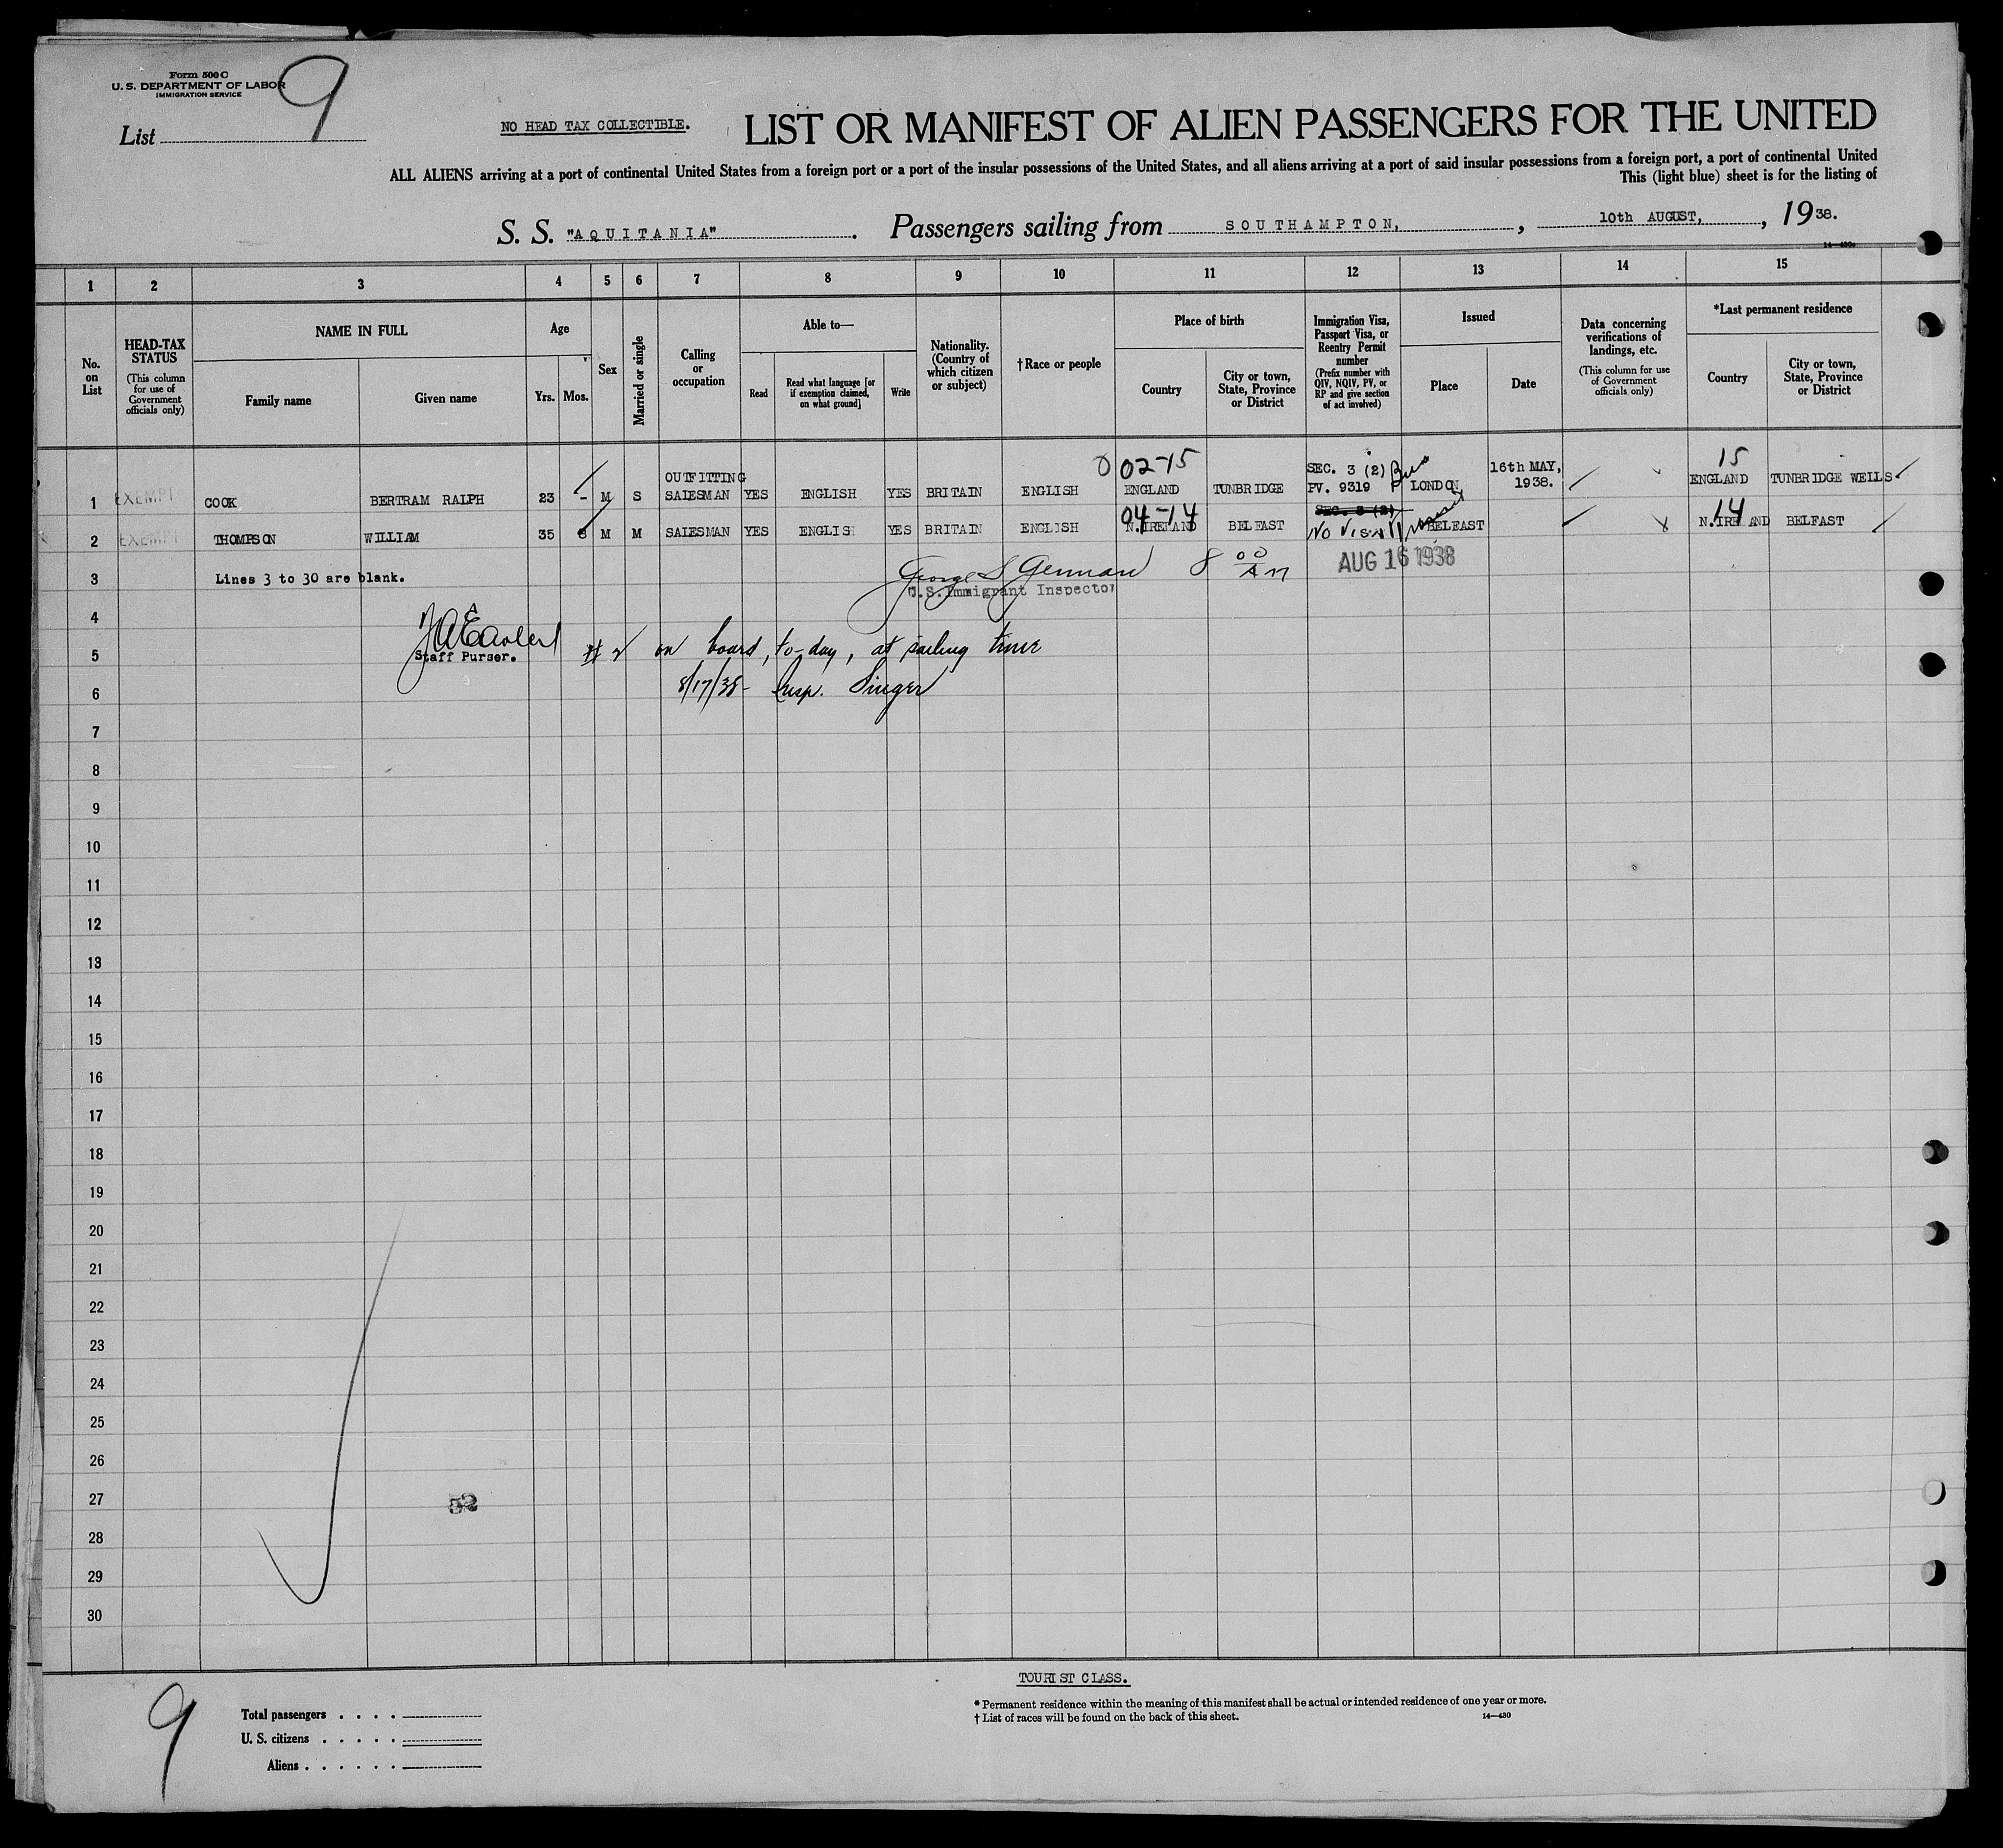 Form 500 C
U. S. DEPARTMENT OF LABOR
IMMIGRATION SERVICE
List 9
NO HEAD TAX COLLECTIBLE.
LIST OR MANIFEST OF ALIEN PASSENGERS FOR THE UNITED
ALL ALIENS arriving at a port of continental United States from a foreign port or a port of the insular possessions of the United States, and all aliens arriving at a port of said insular possessions from a foreign port, a port of continental United
This (light blue) sheet is for the listing of
S. S. "AQUITANIA" . Passengers sailing from SOUTHAMPTON, , 10th AUGUST, , 1938.
14—430
1 2 3 4 5 6 7 8 9 10 11 12 13 14 15
No. on List
HEAD-TAX STATUS
(This column for use of Government officials only)
NAME IN FULL
Family name
Given name
Age
Yrs. Mos.
Sex
Married or single
Calling or occupation
Able to—
Read
Read what language [or if exemption claimed, on what ground]
Write
Nationality. (Country of which citizen or subject)
†Race or people
Place of birth
Country
City or town, State, Province or District
Immigration Visa, Passport Visa, or Reentry Permit number
(Prefix number with QIV, NQIV, PV, or RP and give section of act involved)
Issued
Place
Date
Data concerning verifications of landings, etc.
(This column for use of Government officials only)
*Last permanent residence
Country
City or town, State, Province or District
02-15 15
OUTFITTING SEC. 3 (2) 16th MAY,
1 EXEMPT COOK BERTRAM RALPH 23 - M S SALESMAN YES ENGLISH YES BRITAIN ENGLISH ENGLAND TUNBRIDGE PV. 9319 LONDON, 1938. ENGLAND TUNBRIDGE WELLS.
04-14 SEC. 3 (2) 14
2 EXEMPT THOMPSON WILLIAM 35 8 M M SALESMAN YES ENGLISH YES BRITAIN ENGLISH N.IRELAND BELFAST No Visa BELFAST N.IRELAND BELFAST
3 Lines 3 to 30 are blank. George S Gennard 8 00 AM AUG 16 1938
U.S. Immigrant Inspector
4
5 Staff Purser. #2 on board, to-day, at sailing time
6 8/17/38- Insp. Singer
7
8
9
10
11
12
13
14
15
16
17
18
19
20
21
22
23
24
25
26
27 52
28
29
30
TOURIST CLASS.
9
Total passengers . . . .
U. S. citizens . . . . .
Aliens . . . . . .
* Permanent residence within the meaning of this manifest shall be actual or intended residence of one year or more.
† List of races will be found on the back of this sheet.
14—430